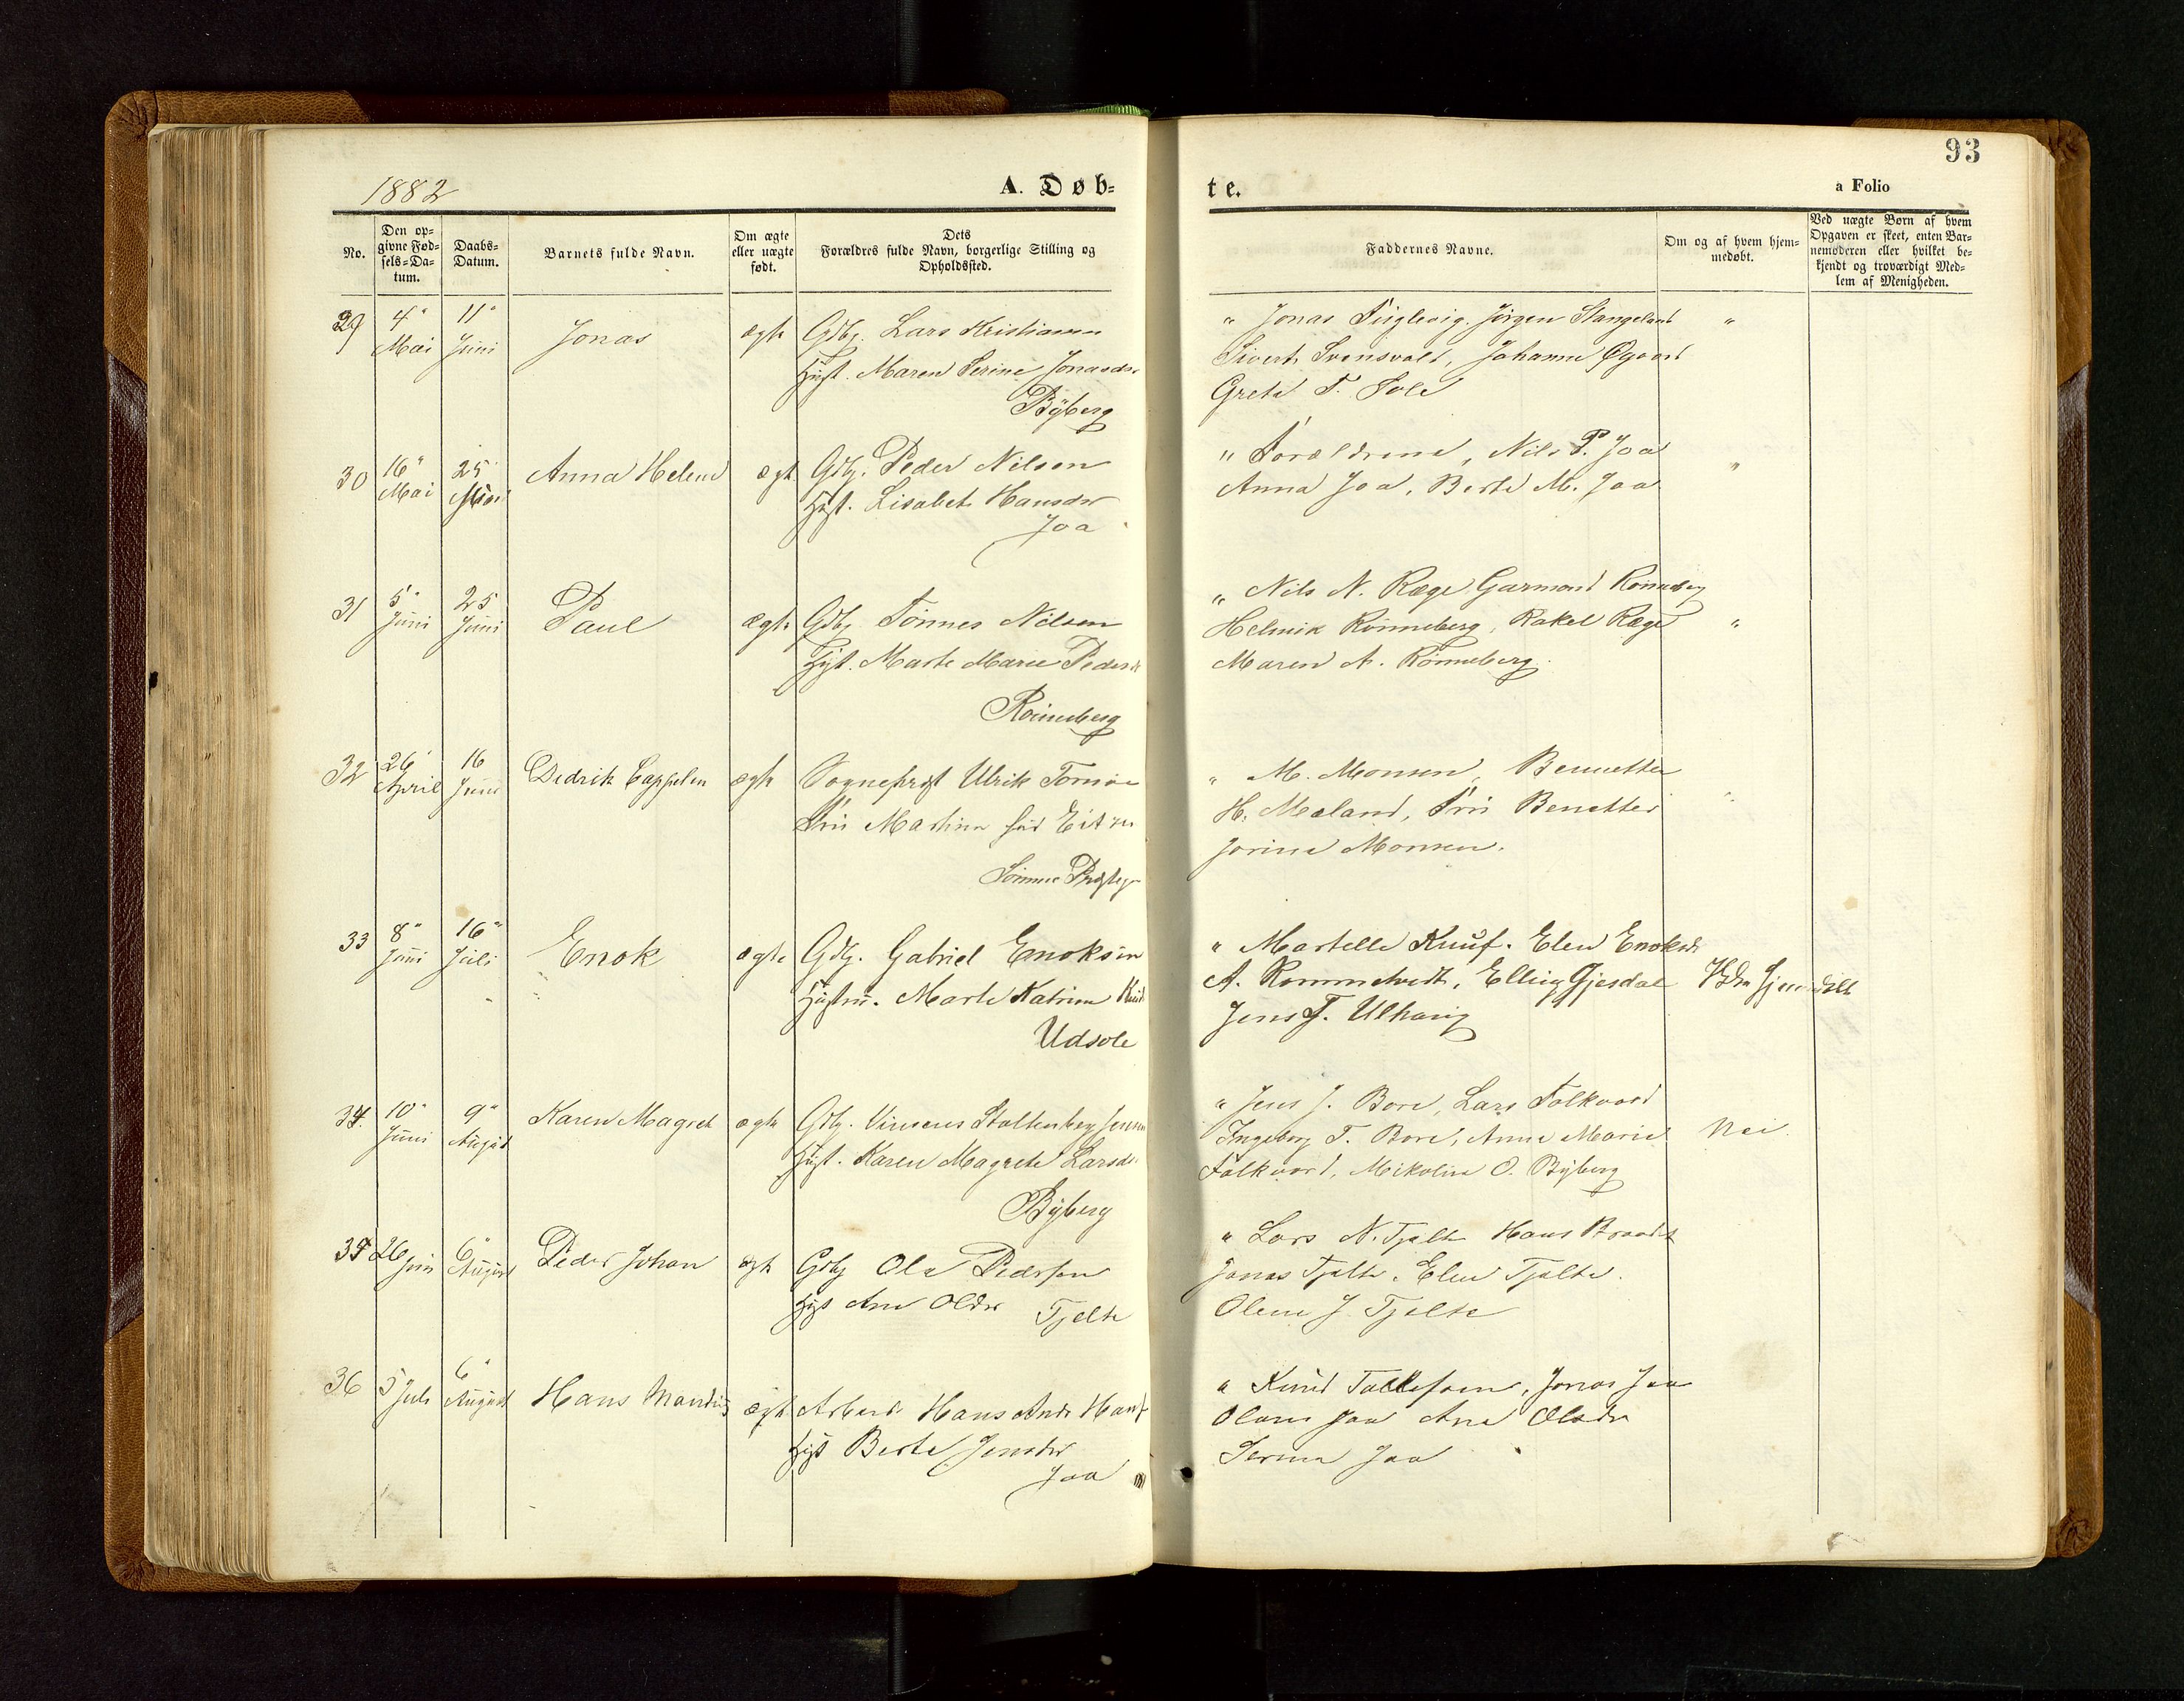 93
1882
A. Døb-
te.
a Folio
No.
Den op-
givne Fød-
sels-Da-
tum.
Daabs-
Datum.
Barnets fulde Navn.
Om ægte
eller uægte
født.
Dets
Forældres fulde Navn, borgerlige Stilling og
Opholdssted.
Faddernes Navne.
Om og af hvem hjem-
medøbt.
Ved uægte Børn af hvem
Opgaven er skeet, enten Bar-
nemoderen eller hvilket be-
kjendt og troværdigt Med-
lem af Menigheden.
29
4"
Mai
11"
Juni
Jonas
ægte
Gdbg. Lars Kristiansen
Hust. Maren Serine Jonasdr
Byberg
" Jonas Fuglevig. Jørgen Stangeland
Sivert Svensvold, Johanne Øgaard
Grete T. Sole
"
30
16"
Mai
25
Anna Helene
ægte
Gdbg. Peder Nilsen
Hust. Lisabet Hansdr
Joa
" Forældrene, Nils P. Joa
Anna Joa, Berte M. Joa
"
31
5"
Juni
25
Juni
Paul
ægte
Gdbg. Tönnes Nilsen
Hust. Marte Marie Pedersdr
Rönneberg
" Nils N. Ræge Garmand Rönneberg
Helmik Rönneberg, Rakel Ræge
Maren A. Rönneberg.
"
32
26
April
16
Juni
Didrik Cappelen
ægte
Sogneprest Ulrik Tomöe
Fru Martine fød
Sömme Prestegr
" M. Monsen, Bennetter
H. Mæland, Fru Benetter
Jorine Monsen.
"
33
8"
Juni
16"
Juli
Enok
ægte
Gdbg. Gabriel Enoksen
Hustru. Marte Katrine
Udsole
" Martelle Knuf. Elen Enoksdr
A. Rommetvedt, Elling Gjesdal
Jens T. Ulhaug
34.
10"
Juni
9"
August
Karen Magret
ægte
Gdbg. Vinsens Stoltenberg Jensen
Hust. Karen Magrete Larsdr
Byberg
" Jens J. Bore, Lars Folkvord
Ingeborg T. Bore, Anne Marie
Folkvord, Mikoline O. Byberg
Nei.
35
26
Juni
6"
August
Peder Johan
ægte
Gdbg Ole Pedersen
Hust Ane Olsdr Tjelte
" Lars N. Tjelte Hans
Jonas Tjelte, Elen Tjelte.
Olene J. Tjelte
36
5 Juli
6"
August
Hans Mandius
ægte
Arbeid. Hans Andr Hans
Hust Berte Jensdr
Joa
" Knud Tollefsen, Jonas Joa
Olene Joa Ane Olsdr
Serine Joa